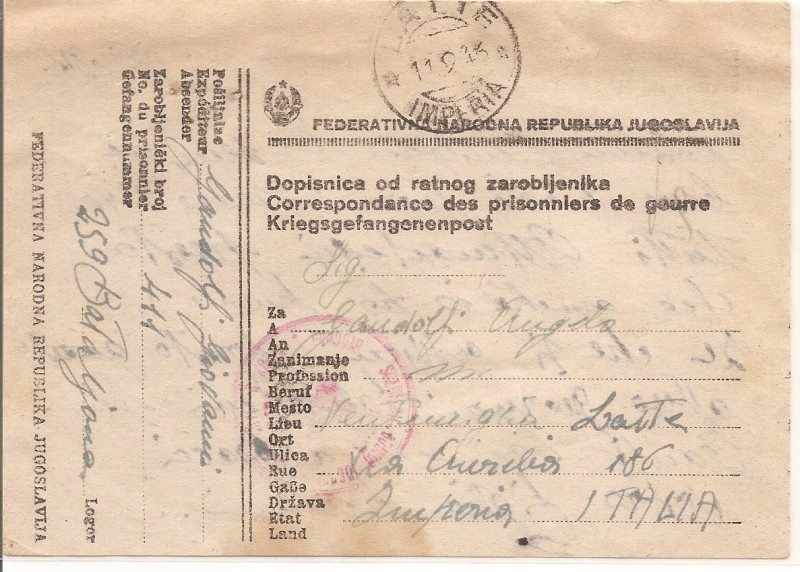 LATTE
11.9.46
IMPERIA
FEDERATIVNA NARODNA REPUBLIKA JUGOSLAVIJA
Dopisnica od ratnog zarobljenika
Correspondance des prisonniers de geurre
Kriegsgefangenenpost
Sig.
Za
A Gandolfi Angelo
An
Zanimanje
Profession
Beruf
Mesto
Lieu Ventimiglia Latte
Ort
Ulica
Rue Via Aurelia 186
Gaße
Država
Etat Imperia ITALIA
Land
Pošiljalac
Expéditeur
Absender Gandolfi Giovanni
Zarobljenički broj
No. du prisonnier 411
Gefangennummer
259 Bataljona Logor
FEDERATIVNA NARODNA REPUBLIKA JUGOSLAVIJA